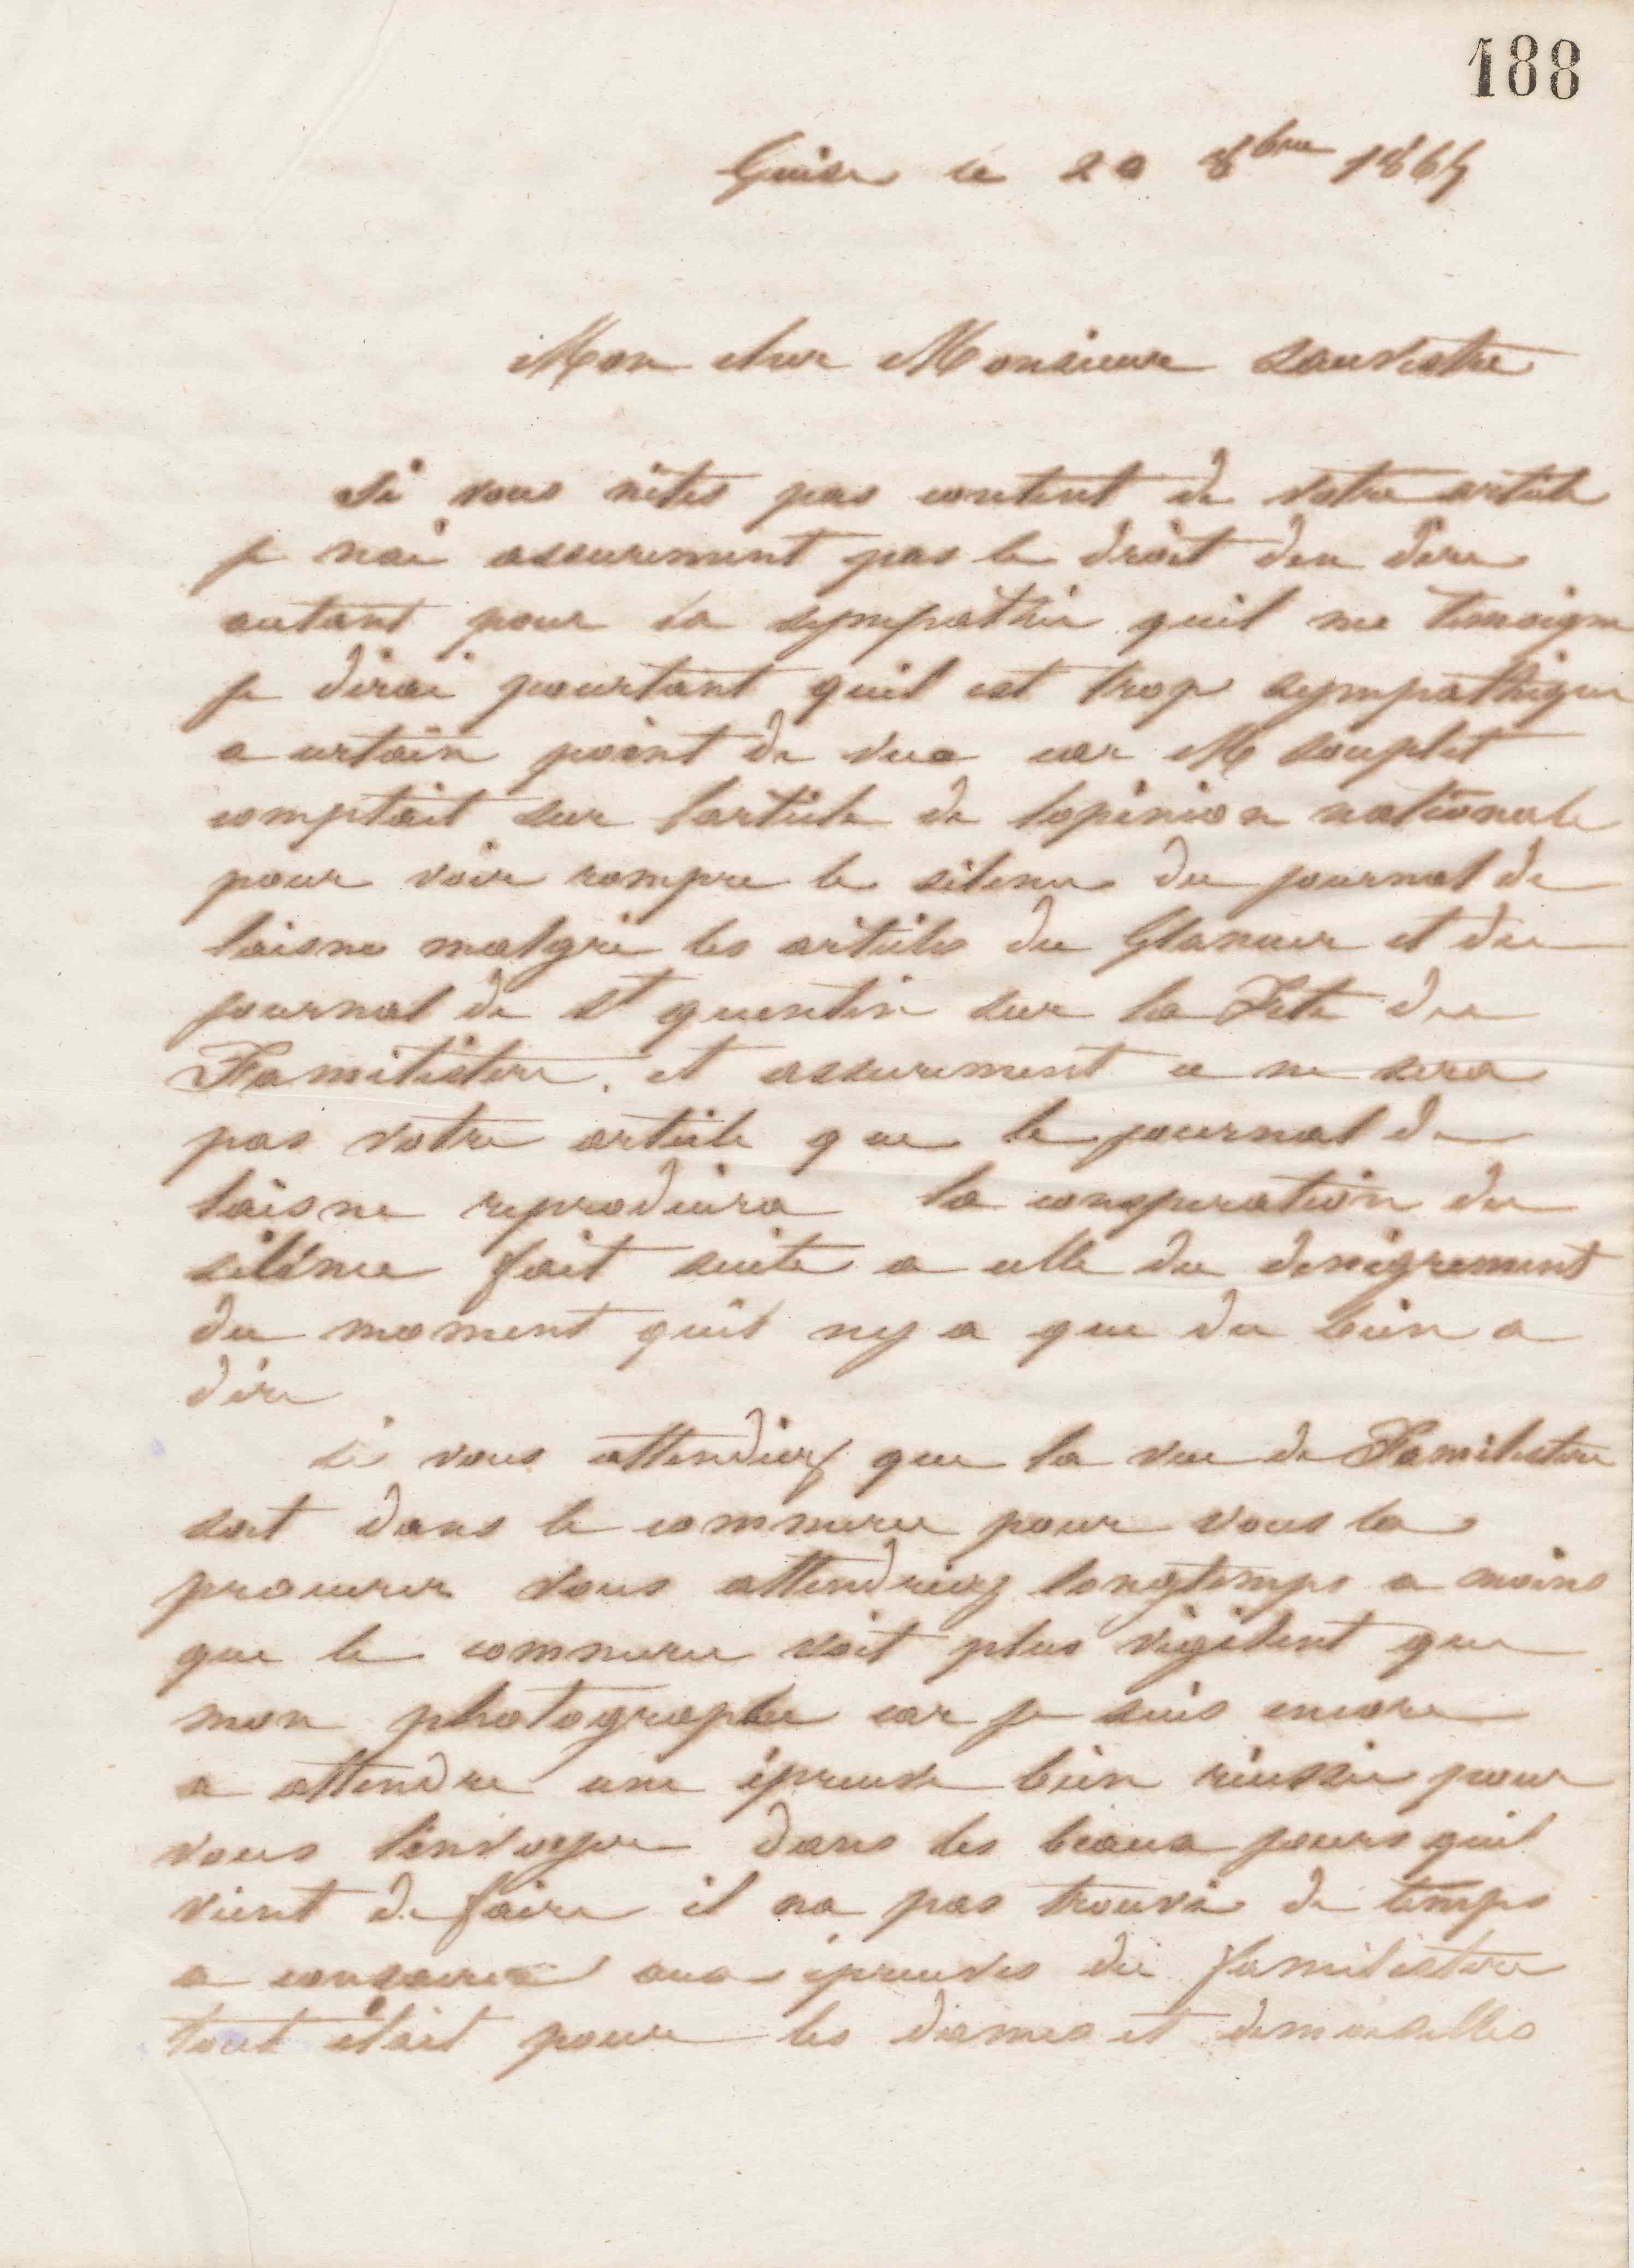 188
Guise le 20 8bre 1865
Mon cher Monsieur Sauvestre
Si vous nêtes pas content de votre article
je nai assurement pas le droit den dire
autant pour la sympathie quil me témoigne
je dirai pourtant quil est trop sympathique
a certain point de vue car M Souplet
comptait sur larticle de lopinion nationale
pour voir rompre le silence du journal de
laisne malgré les articles du Glaneur et du
journal de St quentin sur la Fete du
Familistere. et assurement ce ne sera
pas votre article que le journal de
laisne reproduira la conspiration du
silence fait suite a celle du denigrement
du moment quil ny a que du bien a
dire
si vous attendiez que la vue du Familistere
soit dans le commerce pour vous la
procurer vous attendriez longtemps a moins
que le commerce soit plus vigilent que
mon photographe car je suis encore
a attendre une épreuve bien réussie pour
vous lenvoyer dans les beaux jours quil
vient de faire il na pas trouvé de temps
a consacrer aux épreuves du familistere
tout était pour les dames et demoiselles